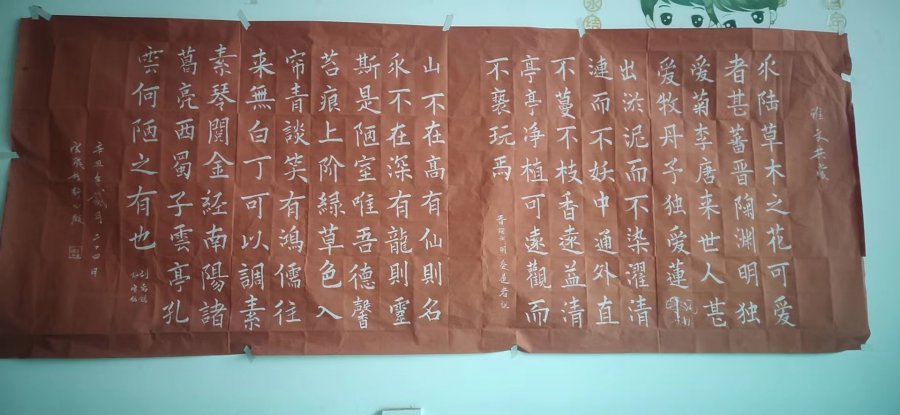 水陆草木之花可爱
者甚蕃晋陶渊明独
爱菊李唐来世人甚
爱牧丹予独爱蓮
出淤泥而不染濯清
漣而不妖中通外直
不蔓不枝香遠益清
亭亭净植可遠觀而
不亵玩焉
山不在高有仙則名
水不在深有龍則靈
斯是陋室唯吾德馨
苔痕上阶緑草色入
帘青談笑有鴻儒往
来無白丁可以調素
素琴閱金经南陽諸
葛亮西蜀子雲亭孔
雲何陋之有也